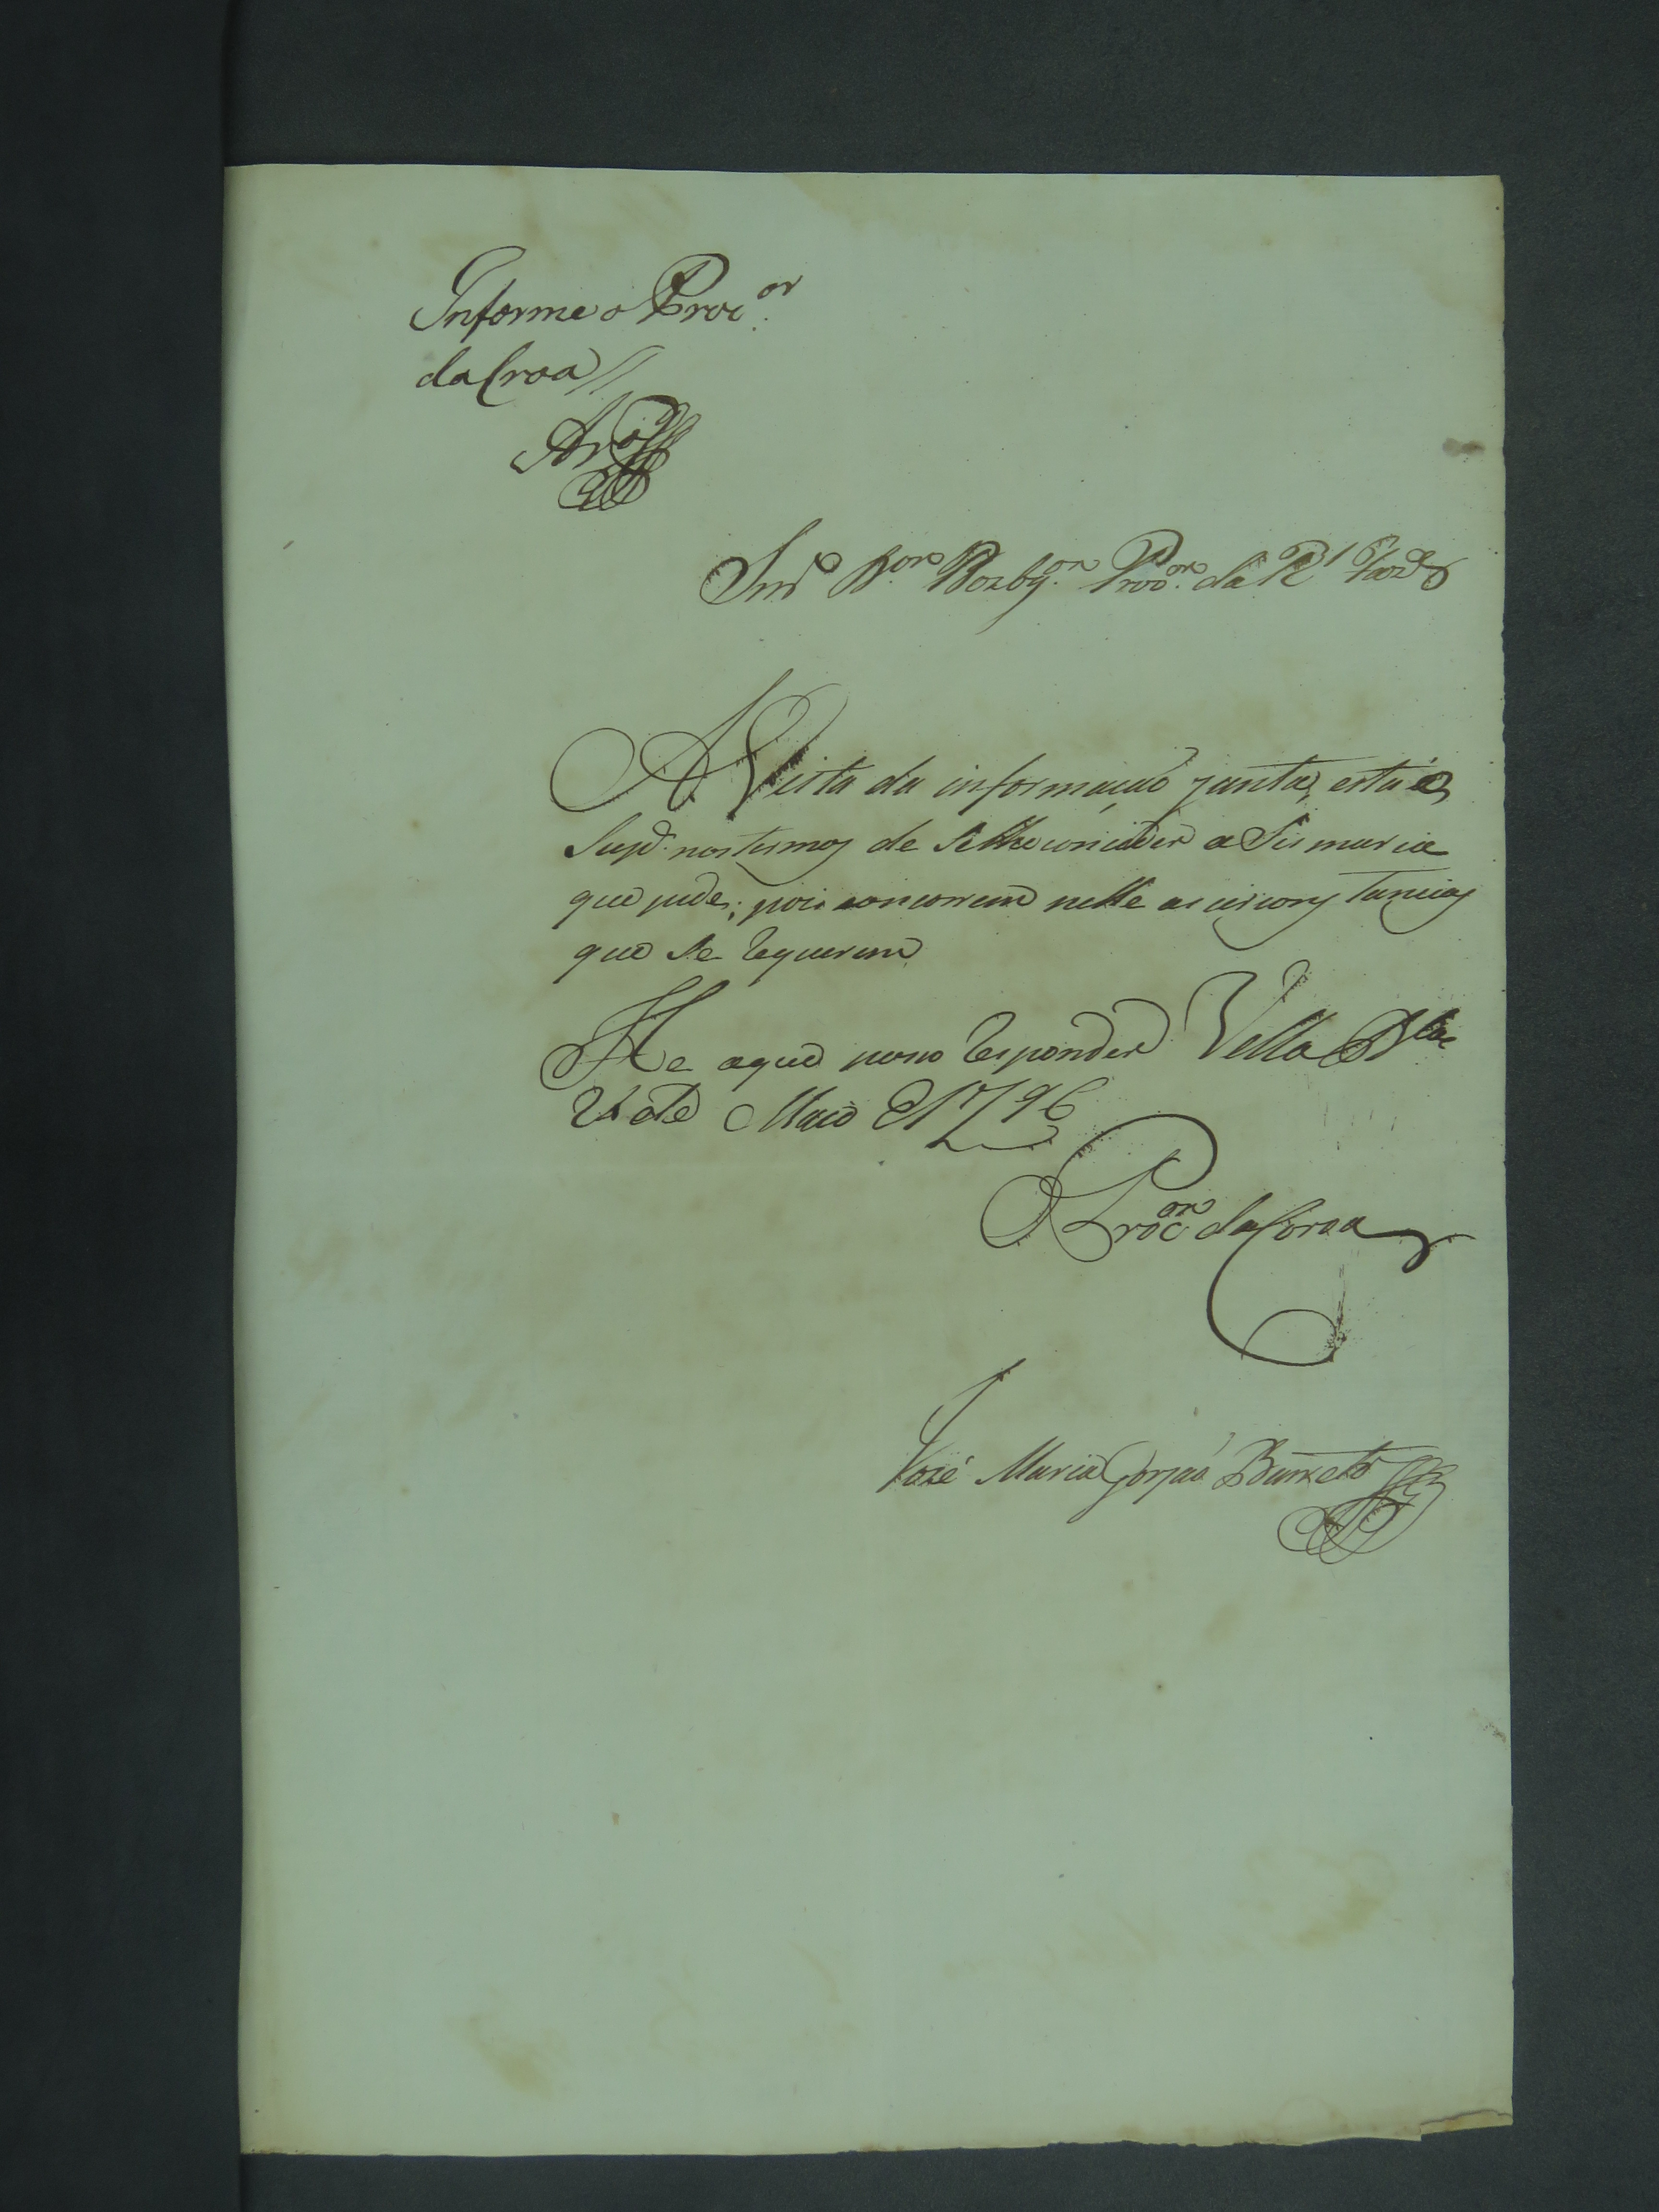 Informe o Proc.or
da Croa //
Snr. D.or Dezbg.or Proc.or da R.l Fazd.a
A Vista da informação junta, está o
Supd.e nos termos de selhe conceder a Sismaria
que pede; pois concorrem nelle as circonstancias
que se requerem
He o que poso responder Villa B.la
de Maio de 1796
O Proc.or da Coroa
José Maria Gorjaõ Barreto